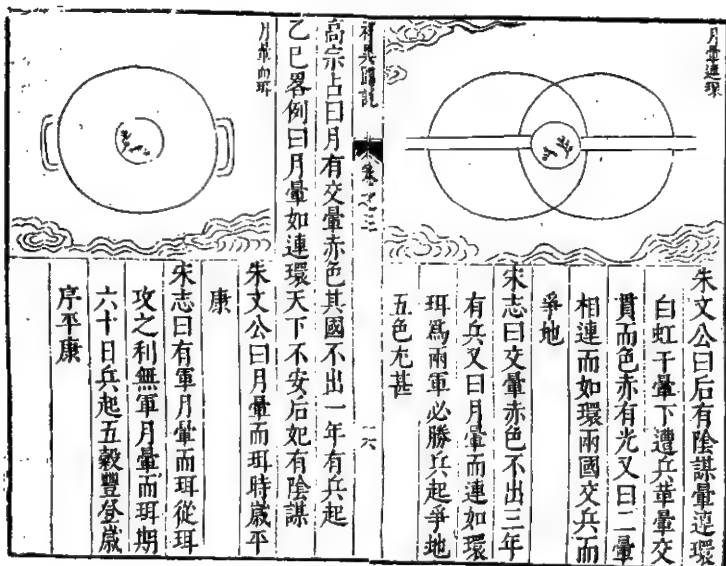 月暈連環
朱文公曰后有陰謀暈連環
白虹干暈下遭兵革暈交
貫而色赤有光又曰二暈
相連而如環兩國交兵而
爭地
宋志曰交暈赤色不出三年
有兵又曰月暈而連如環
珥爲兩軍必勝兵起爭地
五色尤甚
祥異圖說
卷之三
十六
高宗占曰月有交暈赤色其國不出一年有兵起
乙巳畧例曰月暈如連環天下不安后妃有陰謀
月暈而珥
朱文公曰月暈而珥時歲平
康
宋志曰有軍月暈而珥從珥
攻之利無軍月暈而珥期
六十日兵起五穀豐登歲
序平康